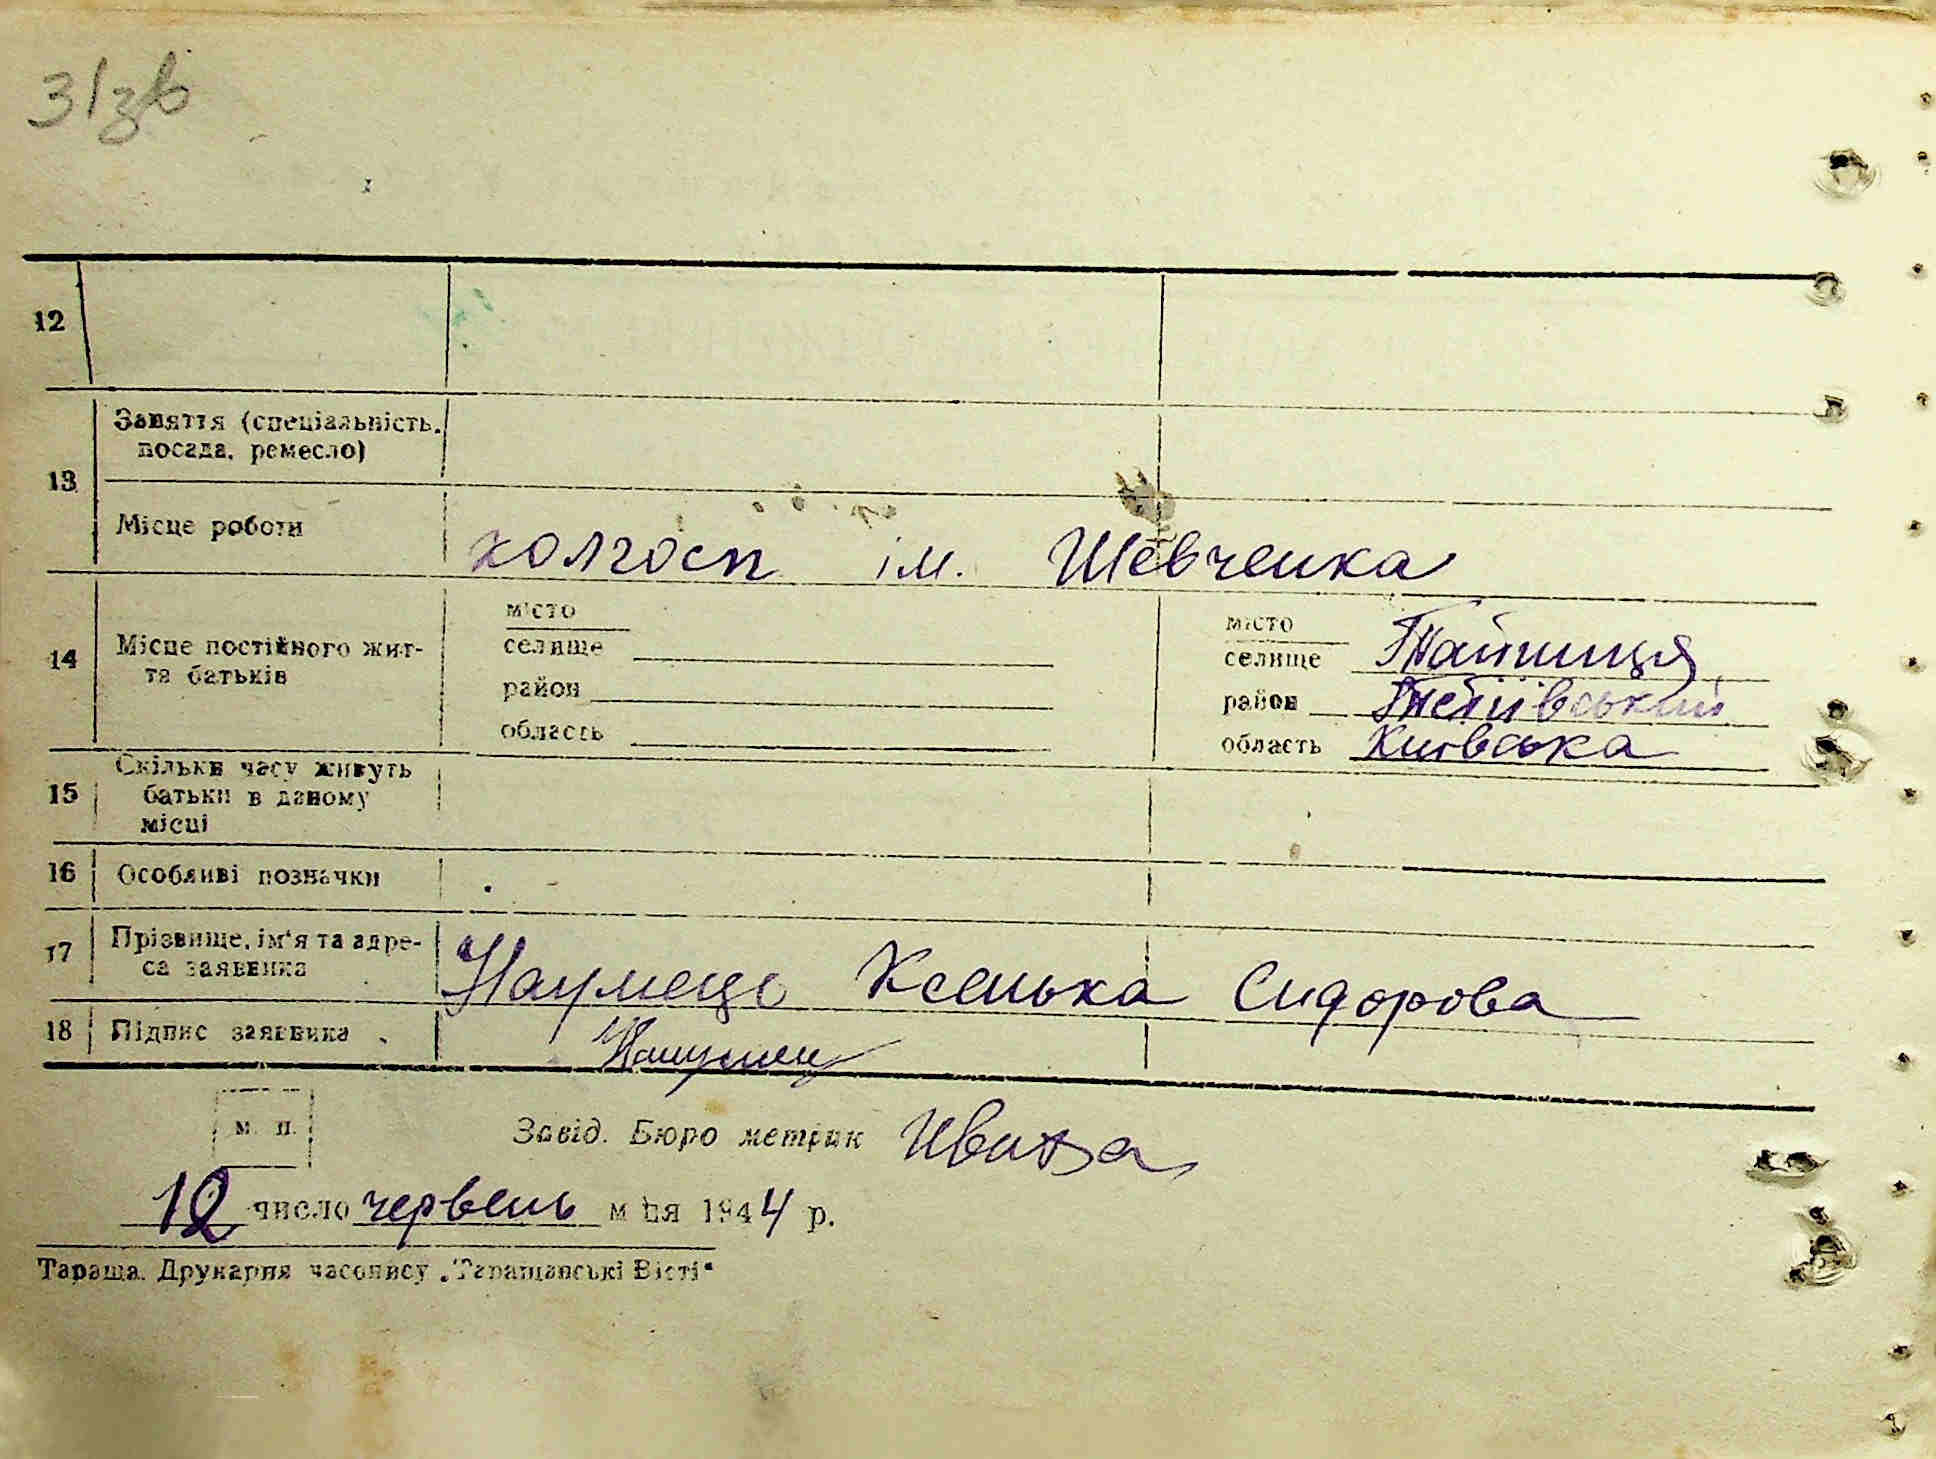 31зв
12
13 Заняття (спеціальність,
посада, ремесло)
Місце роботи колгосп ім. Шевченка
14 Місце постійного жит-
тя батьків
місто
селище
район
область
місто
селище Тайниця
район Тетіївський
область Київська
15 Скільки часу живуть
батьки в даному
місці
16 Особливі позначки
17 Прізвище, ім'я та адре-
са заявника Наумець Ксенька Сидорова
18 Підпис заявника Наумец
м. п. Завід. Бюро метрик
12 число червень м ця 1944 р.
Тараща. Друкарня часопису „Таращанські Вісті"